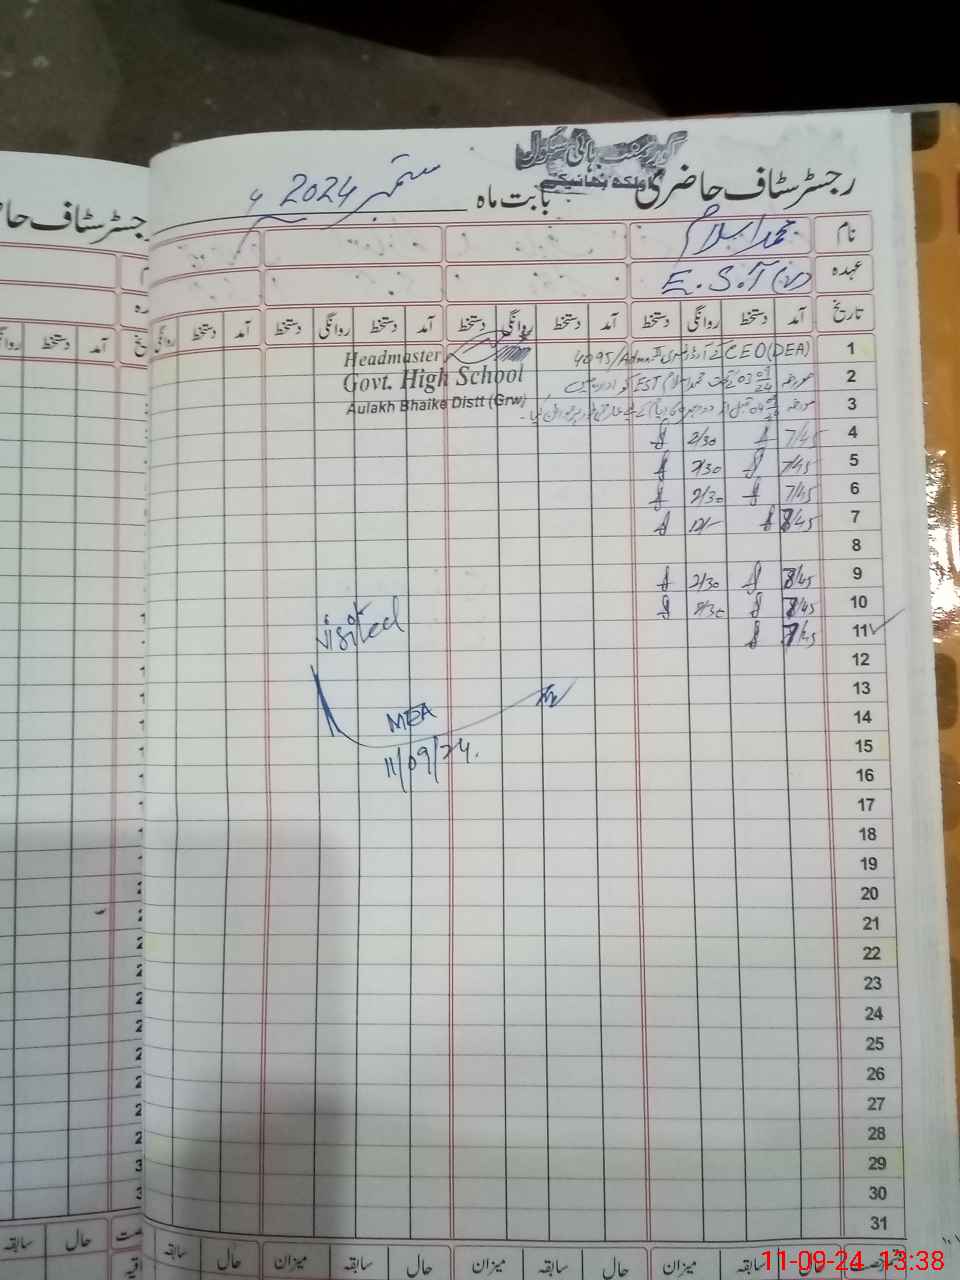 گورنمنٹ ہائی سکول
اولکھ بھائیکے
رجسٹر سٹاف حاضری
بابت ماہ ستمبر 2024ء
نام محمد اسلام
عہدہ E.S.T (V)
تاریخ آمد دستخط روانگی دستخط آمد دستخط روانگی دستخط آمد دستخط روانگی دستخط آمد دستخط روانگی
Headmaster
Govt. High School
Aulakh Bhaike Distt (Grw)
1 CEO (DEA) کے آرڈر نمبری 4095/Admn.II
2 مورخہ 03-09-24 کے تحت محمد اسلام EST کو
3 مورخہ
4 7/45 2/30
5 7/45 2/30
6 7/45 2/30
7 7/45 12/-
8
9 7/45 2/30
10 7/45 2/30
11 7/45
12
13
14
15
16
17
18
19
20
21
22
23
24
25
26
27
28
29
30
31
visited
MEA
11/09/24.
حال سابقہ میزان حال سابقہ میزان حال سابقہ میزان حال سابقہ
رجسٹر سٹاف حا
آمد دستخط
حال سابقہ
11-09-24 13:38